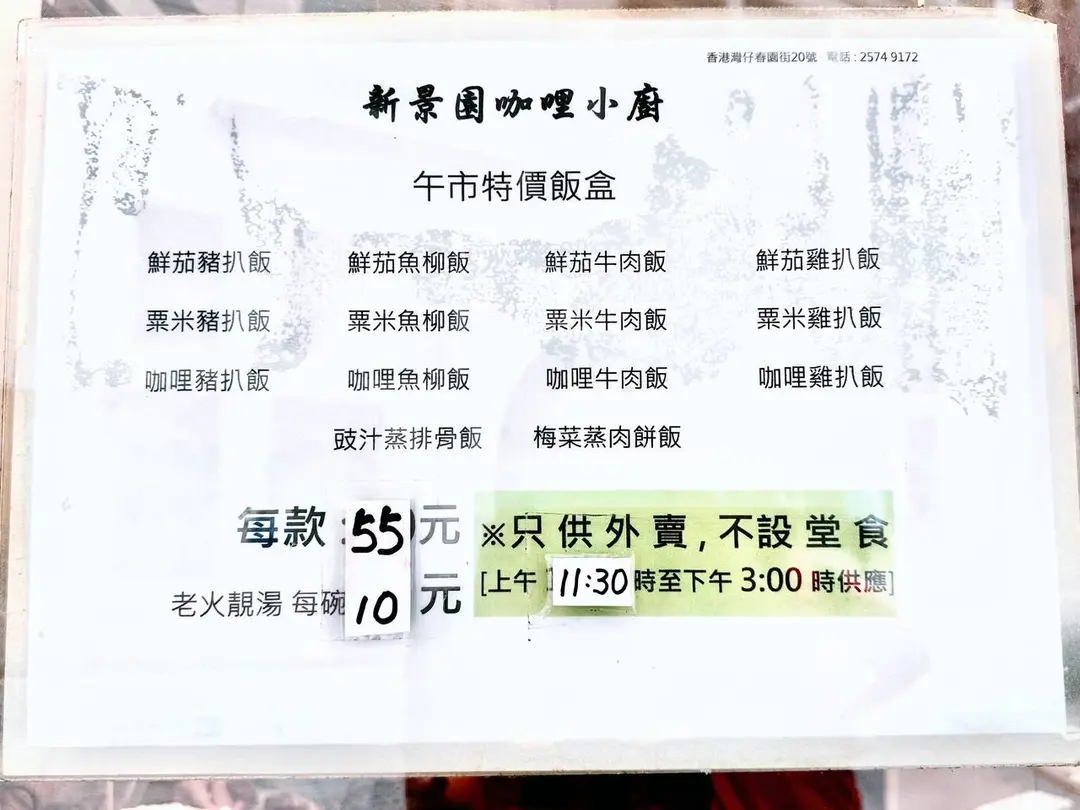 香港灣仔春園街20號 電話 : 2574 9172
新景園咖哩小廚
午市特價飯盒
鮮茄豬扒飯 鮮茄魚柳飯 鮮茄牛肉飯 鮮茄雞扒飯
粟米豬扒飯 粟米魚柳飯 粟米牛肉飯 粟米雞扒飯
咖哩豬扒飯 咖哩魚柳飯 咖哩牛肉飯 咖哩雞扒飯
豉汁蒸排骨飯 梅菜蒸肉餅飯
每款 : 55元
※只供外賣,不設堂食
[上午 11:30 時至下午 3:00 時供應]
老火靚湯 每碗 10 元